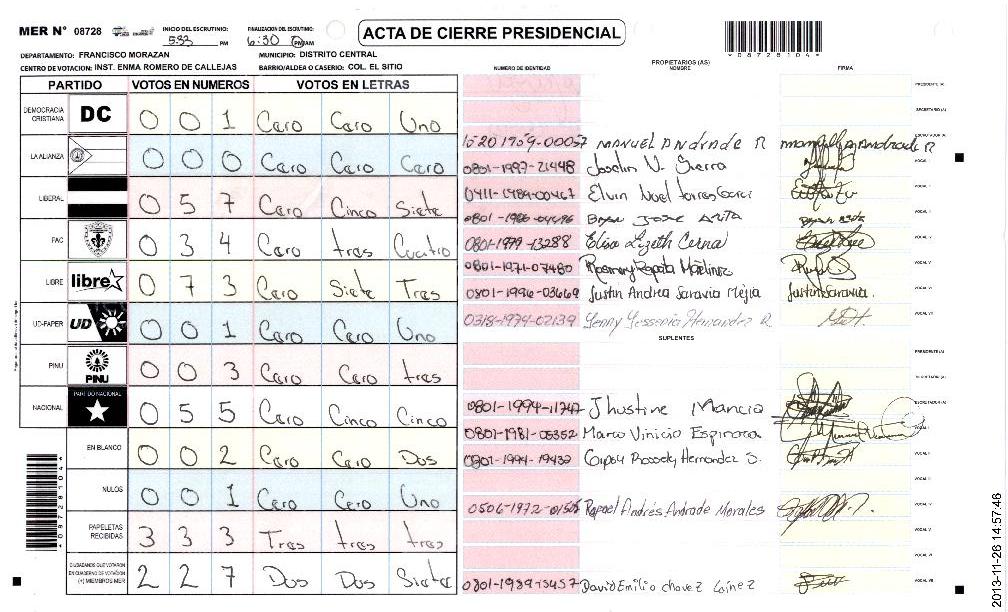 MER N° 08728
INICIO DEL ESCRUTINIO: PM
FINALIZACION DEL ESCRUTINIO: 6:30 PM AM
ACTA DE CIERRE PRESIDENCIAL
*08728104*
DEPARTAMENTO: FRANCISCO MORAZAN MUNICIPIO: DISTRITO CENTRAL
CENTRO DE VOTACION: INST. ENMA ROMERO DE CALLEJAS BARRIO/ALDEA O CASERIO: COL. EL SITIO
PARTIDO VOTOS EN NUMEROS VOTOS EN LETRAS
DEMOCRACIA CRISTIANA DC 0 0 1 Cero Cero Uno
LA ALIANZA 0 0 0 Cero Cero Cero
LIBERAL 0 5 7 Cero Cinco Siete
PAC 0 3 4 Cero tres Cuatro
LIBRE libre 0 7 3 Cero Siete Tres
UD-FAPER UD 0 0 1 Cero Cero Uno
PINU PINU 0 0 3 Cero Cero tres
NACIONAL PARTIDO NACIONAL 0 5 5 Cero Cinco Cinco
EN BLANCO 0 0 2 Cero Cero Dos
NULOS 0 0 1 Cero Cero Uno
PAPELETAS RECIBIDAS 3 3 3 Tres tres tres
CIUDADANOS QUE VOTARON EN CUADERNO DE VOTACION (+) MIEMBROS MER 2 2 7 Dos Dos Siete
*08728104*
PROPIETARIOS (AS)
NUMERO DE IDENTIDAD NOMBRE FIRMA
PRESIDENTE (A)
SECRETARIO (A)
1520 1959-00057 MANUEL ANDRADE R ESCRUTADOR (A)
0801-1997-21448 Joselin V. Sierra VOCAL I
Elvin Noel torres VOCAL II
JOSE VOCAL III
0801-1979-13288 Elisa Lizeth Cerna VOCAL IV
0801-1971-07480 Rosmary Zapata Martinez VOCAL V
0801-1996-03669 Justin Andrea Saravia Mejia Justin Saravia. VOCAL VI
0318-1979-02139 Yenny Yessenia Hernandez R. VOCAL VII
SUPLENTES
PRESIDENTE (A)
SECRETARIO (A)
0801-1994-11747 Jhustine Mancia ESCRUTADOR (A)
0801-1981-05352 Marco Vinicio Espinoza VOCAL I
0801-1994-19432 Hernandez S. VOCAL II
VOCAL III
0506-1972-01505 Rafael Andrés Andrade Morales VOCAL V
VOCAL VI
0801-1989-13457 David Emilio chavez Lainez VOCAL VII
2013-11-26 14:57:46